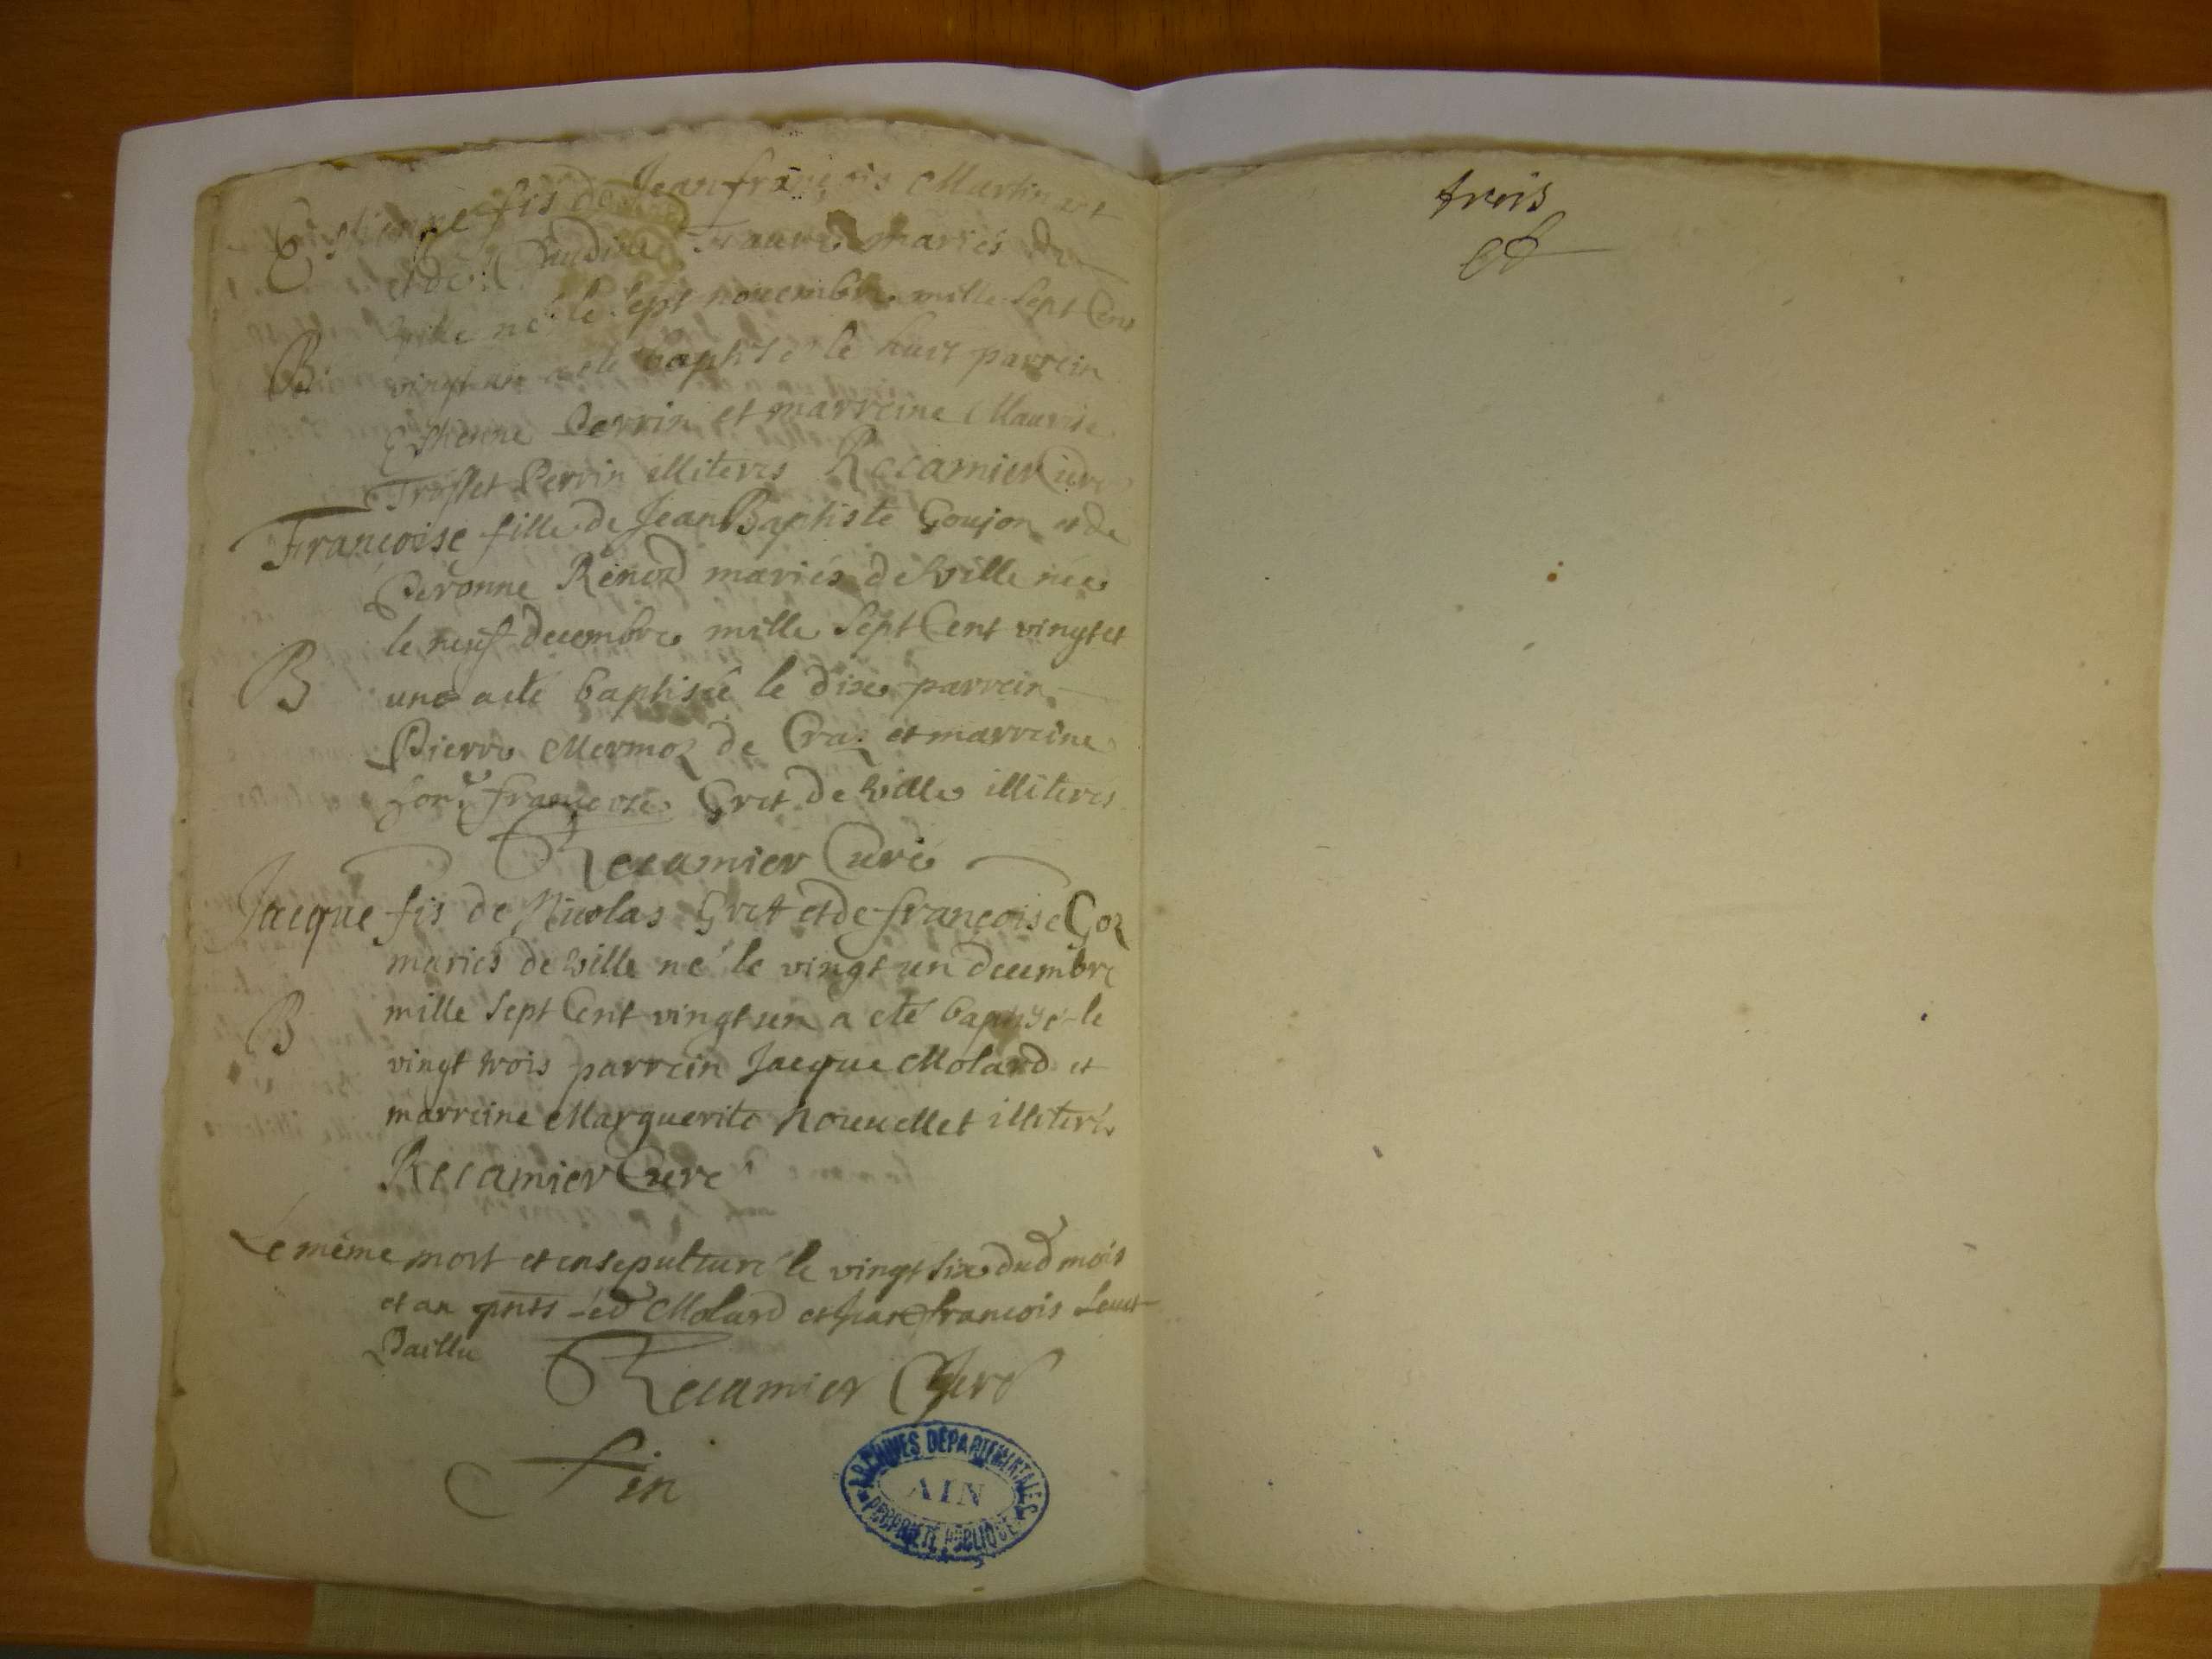 Estienne fis de Jean françois Martin et
et de Claudine mariés de
né le sept nouembre mille sept Cent
B vingt un a eté baptisé le huit parrein
Esthienne Perrin et marreine Maurise
Perrin illiteres Recamier Curé
Françoise fille de Jean Baptiste Goujon et de
Peronne Renod mariés de ville née
le neuf decembre mille sept Cent vingt et
B une a eté baptisée le dix parrein
Pierre Mermoz de Craz et marreine
françoise Gret de ville illiteres
Recamier Curé
Jacque fis de Nicolas Gret et de françoise Goz
mariés de ville né le vingt un decembre
B mille sept Cent vingt un a eté baptisé le
vingt trois parrein Jacque Molard et
marreine Marguerite Nouuellet illiterés
Recamier Curé
Le même mort et ensepulturé le vingt six dud mois
et an pnts led Molard et Jean francois
Paillu
Recamier Curé
fin
ARCHIVES DEPARTEMENTALES
AIN
PROPRIETE PUBLIQUE
trois